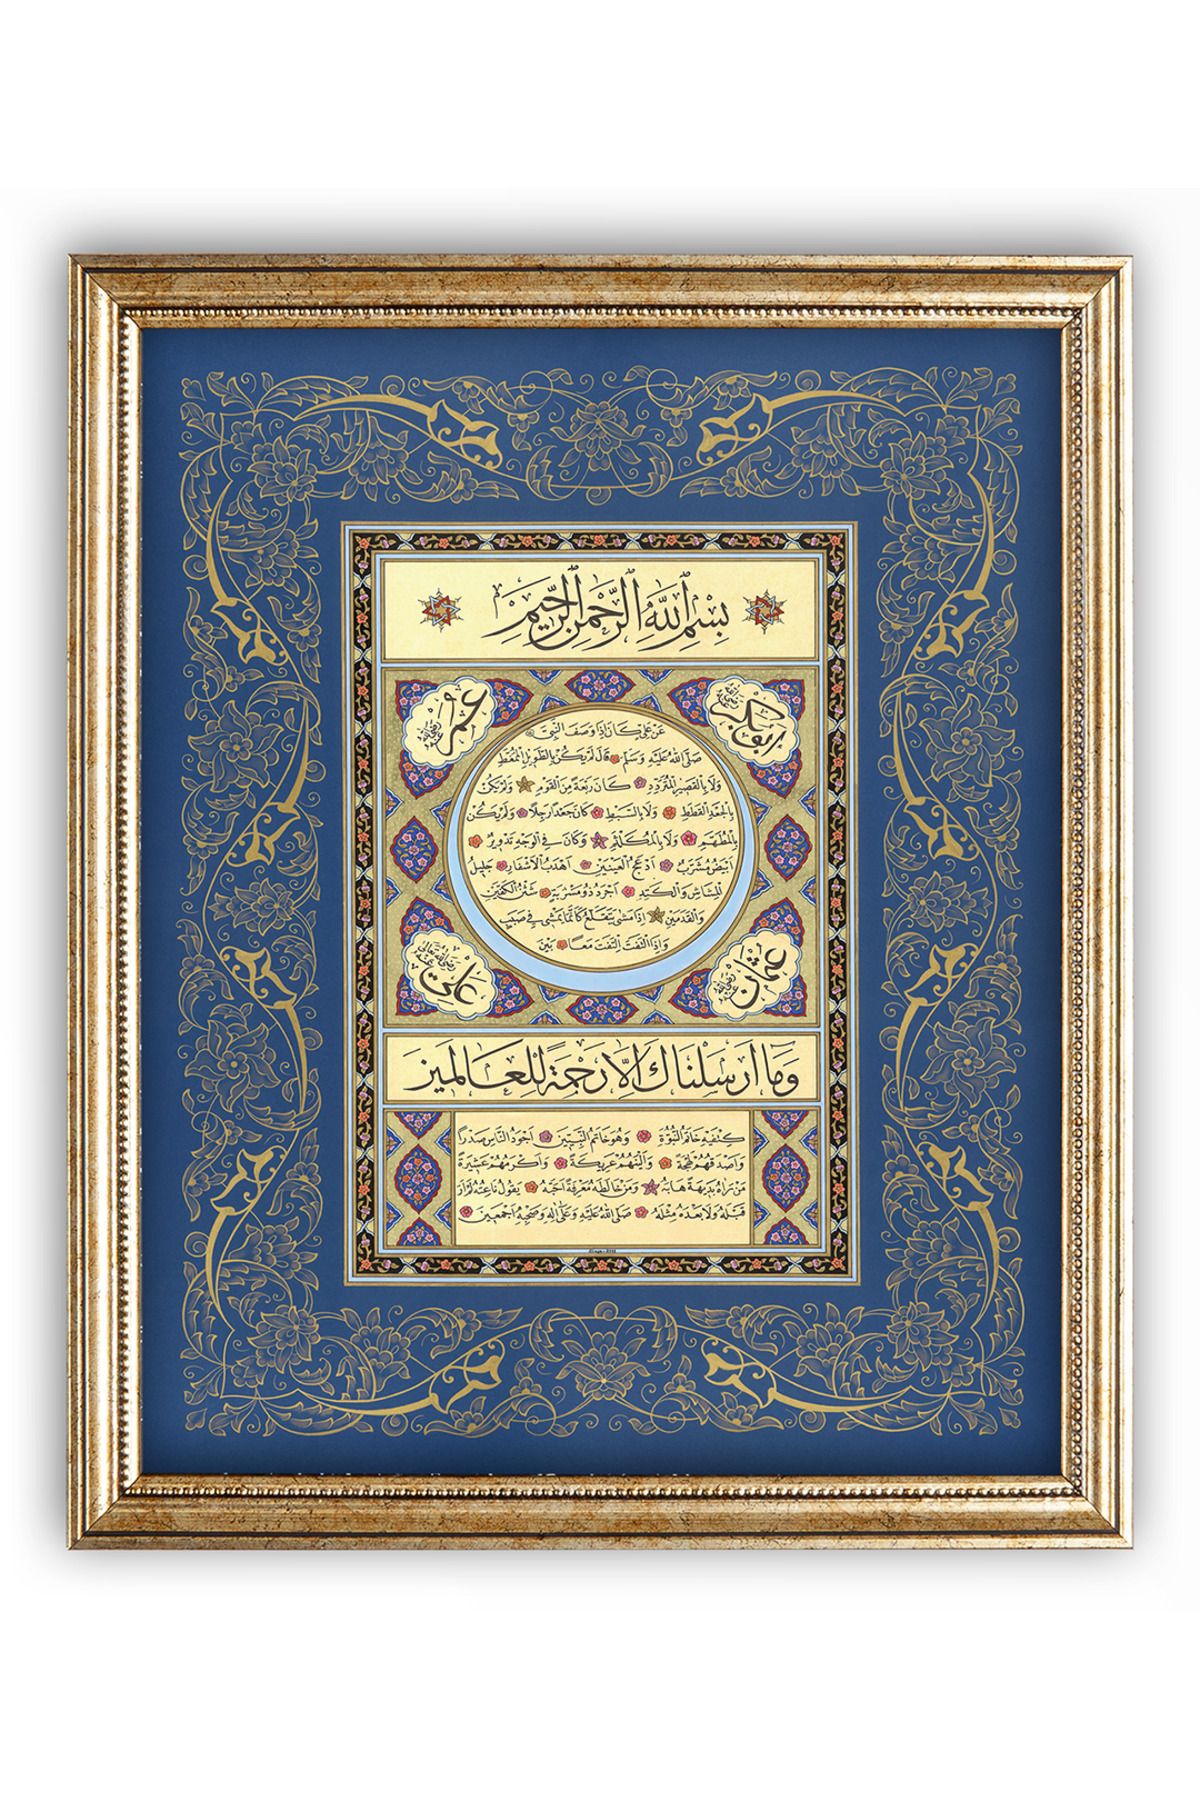 بِسْمِ اللهِ الرَّحْمٰنِ الرَّحِيمِ
ابوبكر رضي الله عنه
عمر رضي الله عنه
عَنْ عَلِيٍّ كَانَ اِذَا وَصَفَ النَّبِيَّ
صَلَّى اللهُ عَلَيْهِ وَسَلَّمَ قَالَ لَمْ يَكُنْ بِالطَّوِيلِ الْمُمَغَّطِ
وَلَا بِالْقَصِيرِ الْمُتَرَدِّدِ كَانَ رَبْعَةً مِنَ الْقَوْمِ وَلَمْ يَكُنْ
بِالْجَعْدِ الْقَطَطِ وَلَا بِالسَّبِطِ كَانَ جَعْدًا رَجِلًا وَلَمْ يَكُنْ
بِالْمُطَهَّمِ وَلَا بِالْمُكَلْثَمِ وَكَانَ فِي الْوَجْهِ تَدْوِيرٌ
اَبْيَضُ مُشْرَبٌ اَدْعَجُ الْعَيْنَيْنِ اَهْدَبُ الْاَشْفَارِ جَلِيلُ
الْمُشَاشِ وَالْكَتَدِ اَجْرَدُ ذُو مَسْرُبَةٍ شَثْنُ الْكَفَّيْنِ
وَالْقَدَمَيْنِ اِذَا مَشَى يَتَقَلَّعُ كَاَنَّمَا يَمْشِي فِي صَبَبٍ
وَاِذَا الْتَفَتَ اِلْتَفَتَ مَعًا بَيْنَ
عثمان رضي الله عنه
علي رضي الله تعالى عنه
وَمَا اَرْسَلْنَاكَ اِلَّا رَحْمَةً لِلْعَالَمِينَ
كِتْفَيْهِ خَاتَمُ النُّبُوَّةِ وَهُوَ خَاتَمُ النَّبِيِّينَ اَجْوَدُ النَّاسِ صَدْرًا
وَاَصْدَقُهُمْ لَهْجَةً وَاَلْيَنُهُمْ عَرِيكَةً وَاَكْرَمُهُمْ عَشِيرَةً
مَنْ رَاٰهُ بَدِيهَةً هَابَهُ وَمَنْ خَالَطَهُ مَعْرِفَةً اَحَبَّهُ يَقُولُ نَاعِتُهُ لَمْ اَرَ
قَبْلَهُ وَلَا بَعْدَهُ مِثْلَهُ صَلَّى اللهُ عَلَيْهِ وَعَلٰى اٰلِهِ وَصَحْبِهِ اَجْمَعِينَ